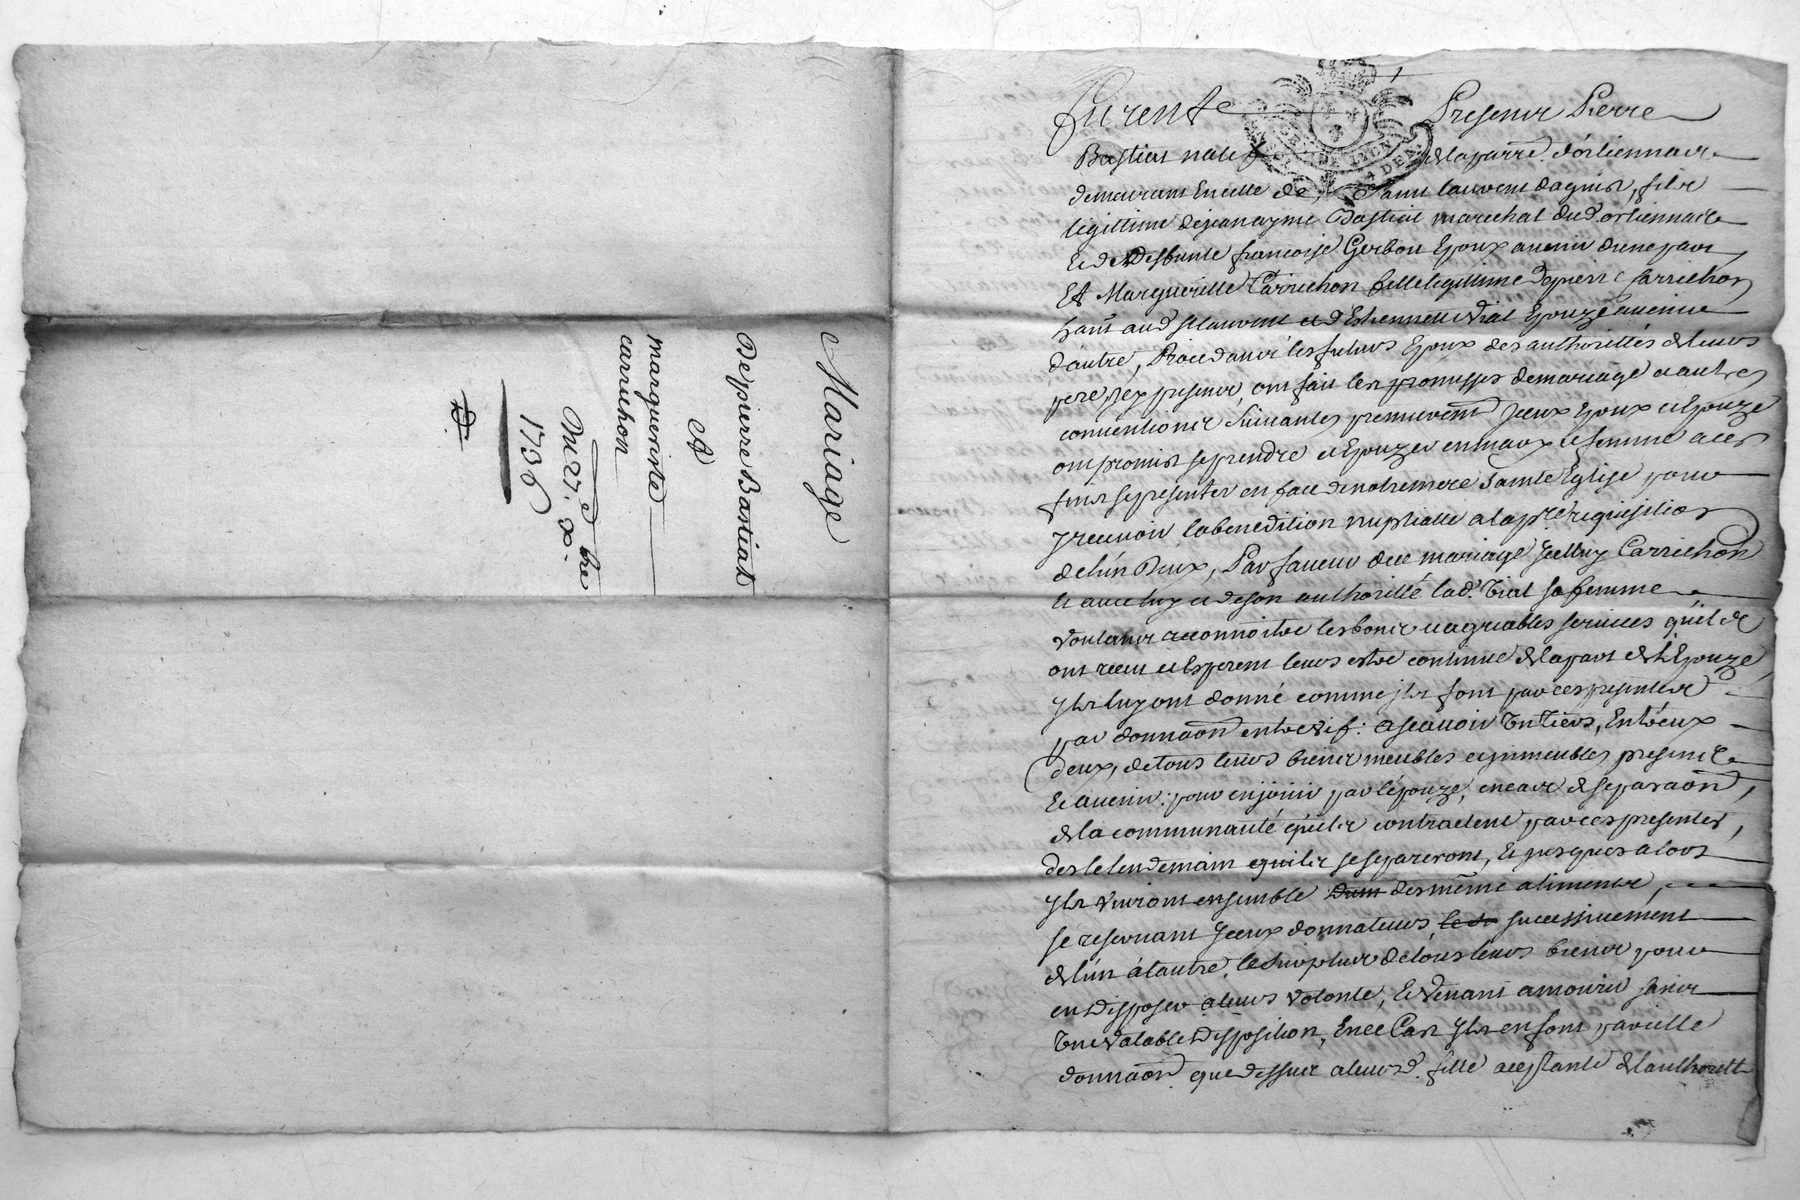 Mariage
De pierre Bastiat
Et
margueritte
carrichon
Du 27. 8bre
1736
Furent Presents Pierre
Bastiat natif de la parr̃e. d'orliennas
demeurant en celle de Saint laurent dagnis, fils
legittime de jean ayme Bastiat marechal dud. orliennas
Et de Deffunte francoise Gerbou Epoux avenir dune part
Et Margueritte Carrichon fille legittime de pierre Carrichon
hant aud st laurent et d'Estiennette Vial Epouze avenir
d'autre, Procedants les futurs Epoux des authorittés de leurs
pere icy presents, ont fait les promesses de mariage et autres
conventions suivantes premierem̃t iceux Epoux et Epouze
ont promis se prendre et Epouzer en mary et femme a ces
fins se presenter en face de notre mere Sainte Eglise pour
y recevoir la benediction nuptialle a la p.re requisition
de l'un Deux, Par faveur de ce mariage iceluy Carrichon
et avec luy et de son authoritté lad. Vial sa femme
voulants reconnoitre les bons et agreables services qu'ils
ont receu et Esperent leurs estre continué de la part de l'Epouze
ils luy ont donné comme ils font par ces presentes
par donnaõn entre vif: a scavoir Un Tiers, Entre eux
deux, de tous leurs biens meubles et immeubles presents
Et avenir: pour en jouir par l'épouze, en cas de separaõn,
de la communauté qu'ils contractent par ces presentes,
des le lendemain qu'ils se separeront, Et jusques alors
ils vivront ensemble des même aliments,
se reservant iceux donnateurs, successivement
de l'un à l'autre, le surplus de tous leurs biens pour
en Disposer a leurs volonté, Et Venants a mourir sans
Une valable Disposition, En ce Cas ils en font pareille
donnaõn que dessus a leurd. fille acceptante de l'authoritt